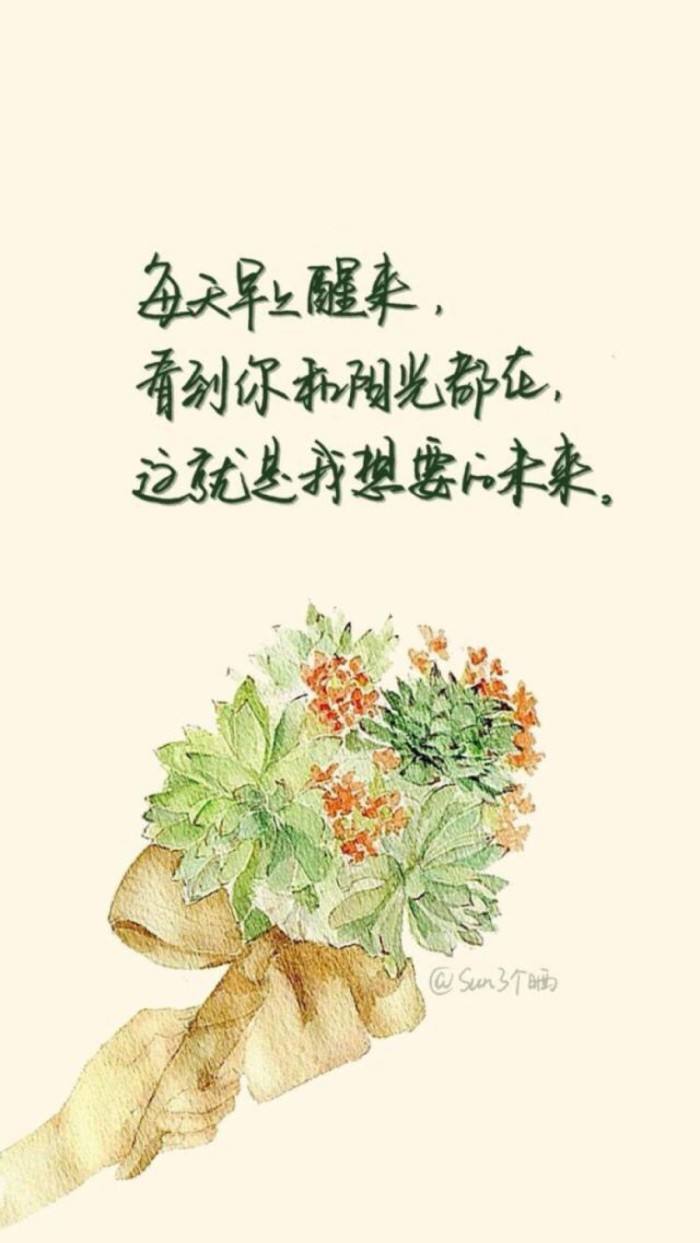 每天早上醒来，
看到你和阳光都在，
这就是我想要的未来。
@Sun3个晒